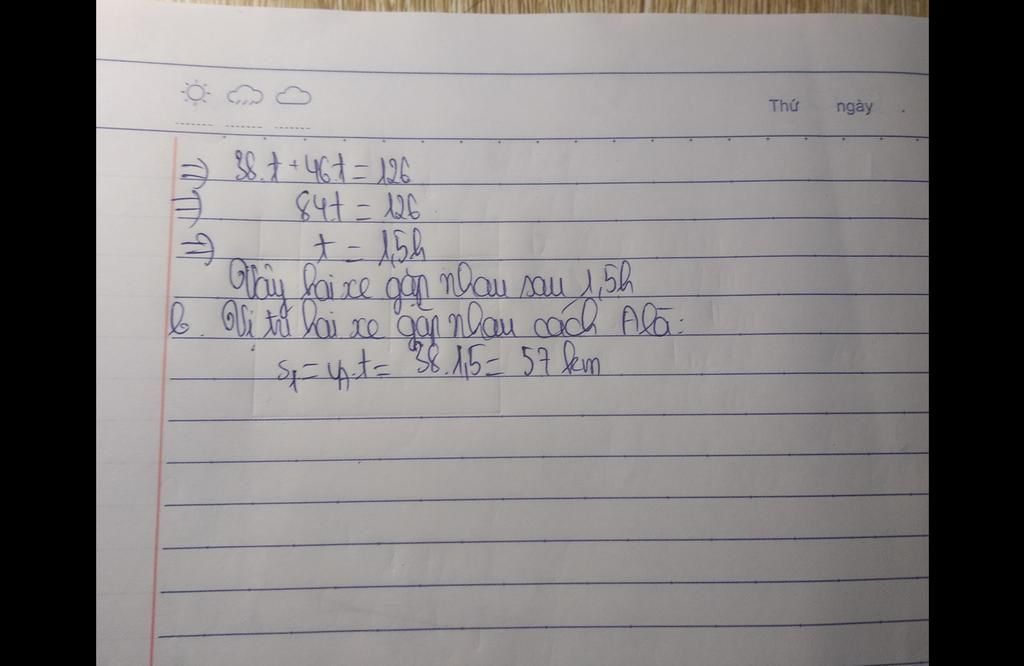 Thứ ngày .
=> 38.t + 46t = 126
=> 84t = 126
=> t = 1,5h
Vậy hai xe gặp nhau sau 1,5h
b. Vị trí hai xe gặp nhau cách A là:
S₁ = v₁.t = 38.1,5 = 57 km